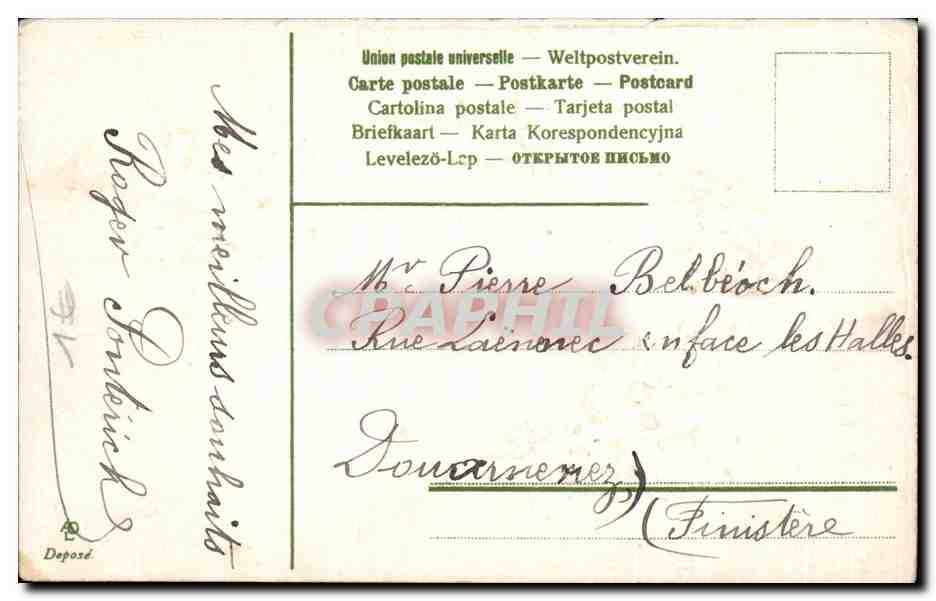 Union postale universelle — Weltpostverein.
Carte postale — Postkarte — Postcard
Cartolina postale — Tarjeta postal
Briefkaart — Karta Korespondencyjna
Levelező-Lap — ОТКРЫТОЕ ПИСЬМО
Mes meilleurs souhaits
Roger
Mr Pierre Belbéoch.
Rue Laënnec en face les Halles.
Douarnenez
(Finistère
CPAPHIL
Deposé.